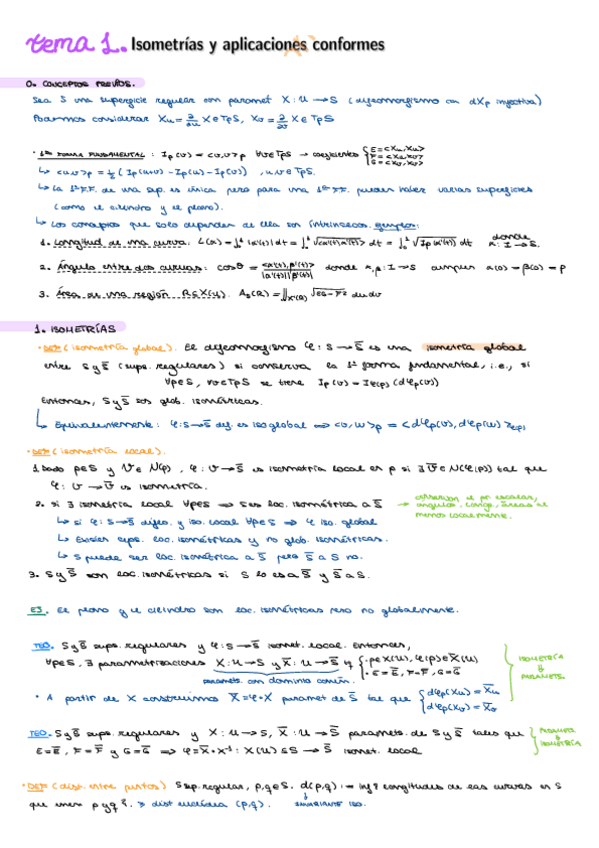 tema 1. Isometrías y aplicaciones conformes
0. CONCEPTOS PREVIOS.
Sea S una superficie regular con paramet X: U → S (difeomorfismo con dXp inyectiva)
Podemos considerar Xu = ∂/∂u X ∈ TpS, Xv = ∂/∂v X ∈ TpS
· 1ª FORMA FUNDAMENTAL: Ip(v) = <v,v>p ∀v∈TpS → coeficientes { E = <Xu,Xu> F = <Xu,Xv> G = <Xv,Xv>
↳ <u,v>p = ½ (Ip(u+v) - Ip(u) - Ip(v)), u,v ∈ TpS.
↳ La 1ª F.F. de una sup. es única pero para una 1ª F.F. pueden haber varias superficies
(como el cilindro y el plano).
↳ Los conceptos que solo dependen de ella son intrínsecos. Ejemplos:
1. Longitud de una curva: L(α) = ∫ |α'(t)| dt = ∫ √<α'(t),α'(t)> dt = ∫ √Ip(α'(t)) dt donde α: I → S.
2. Ángulo entre dos curvas: cosθ = <α'(t),β'(t)> / |α'(t)||β'(t)| donde α,β: I → S cumplen α(0) = β(0) = p
3. Área de una región R ⊆ X(U). As(R) = ∬X⁻¹(R) √EG-F² du dv
1. ISOMETRÍAS
· DEFº (isometría global). El difeomorfismo φ: S → S̄ es una isometría global
entre S y S̄ (sups. regulares) si conserva la 1ª forma fundamental, i.e., si
∀p∈S, v∈TpS se tiene Ip(v) = Iφ(p) (dφp(v))
Entonces, S y S̄ son glob. isométricas.
↳ Equivalentemente: φ: S → S̄ dif. es iso global ⟺ <v,w>p = <dφp(v), dφp(w)>φ(p)
· DEFº (isometría local).
1. Dado p∈S y V ∈ N(p), φ: V → S̄ es isometría local en p si ∃ V̄ ∈ N(φ(p)) tal que
φ: V → V̄ es isometría.
2. si ∃ isometría local ∀p∈S ⟹ S es loc. isométrica a S̄ → conservan el pr. escalar, ángulos, long., áreas al menos localmente.
↳ si φ: S → S̄ difeo. y iso. local ∀p∈S ⟹ φ iso. global
↳ Existen sups. loc. isométricas y no glob. isométricas.
↳ S puede ser loc. isométrica a S̄ pero S̄ a S no.
3. S y S̄ son loc. isométricas si S lo es a S̄ y S̄ a S.
EJ. El plano y el cilindro son loc. isométricas pero no globalmente.
TEO. S y S̄ sups. regulares y φ: S → S̄ isomet. local. Entonces,
∀p∈S, ∃ parametrizaciones X: U → S y X̄: U → S̄ tq { · p∈X(U), φ(p)∈X̄(U) · E = Ē, F = F̄, G = Ḡ
paramets. con dominio común.
ISOMETRÍA ⇓ PARAMETS.
· A partir de X construimos X̄ = φ∘X paramet de S̄ tal que { dφp(Xu) = X̄u dφp(Xv) = X̄v
TEO. S y S̄ sups. regulares y X: U → S, X̄: U → S̄ paramets. de S y S̄ tales que
E = Ē, F = F̄ y G = Ḡ ⟹ φ = X̄∘X⁻¹: X(U) ⊆ S → S̄ isomet. local
PARAMETS ⇓ ISOMETRÍA
· DEFº (dist. entre puntos) S sup. regular, p,q∈S. d(p,q) := inf { longitudes de las curvas en S
que unen p y q }. ≥ dist euclídea (p,q). INVARIANTE ISO.